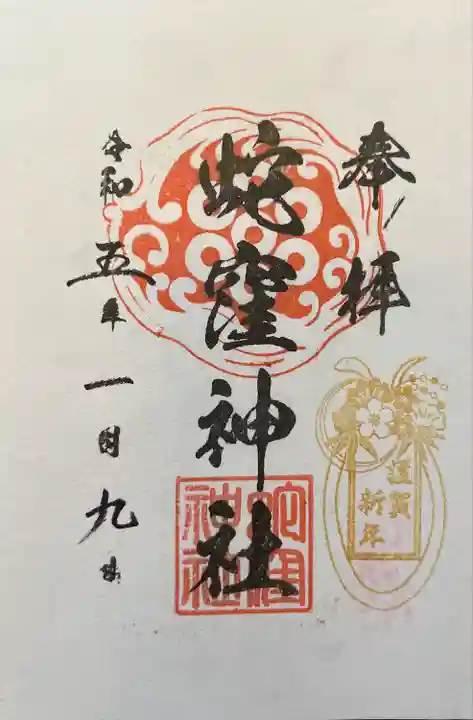 奉拝
蛇窪神社
蛇窪神社
令和五年一月九日
謹賀新年